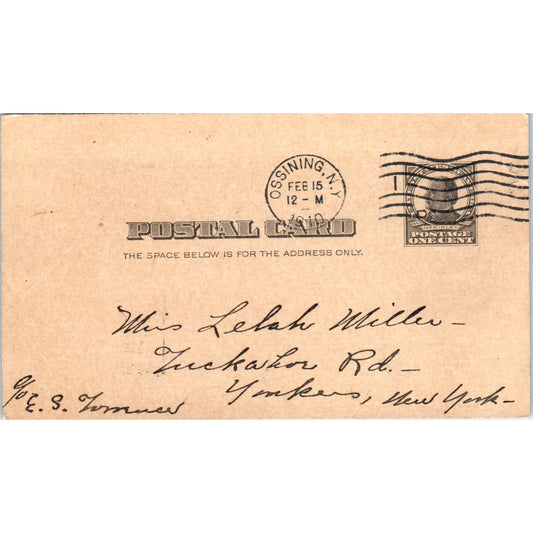 OSSINING, N.Y
FEB 15
12 - M
1910
POSTAL CARD
THE SPACE BELOW IS FOR THE ADDRESS ONLY.
POSTAGE
ONE CENT
Miss Lelah Miller -
Tuckahoe Rd. -
Yonkers, New York -
c/o
E. S. Torrence